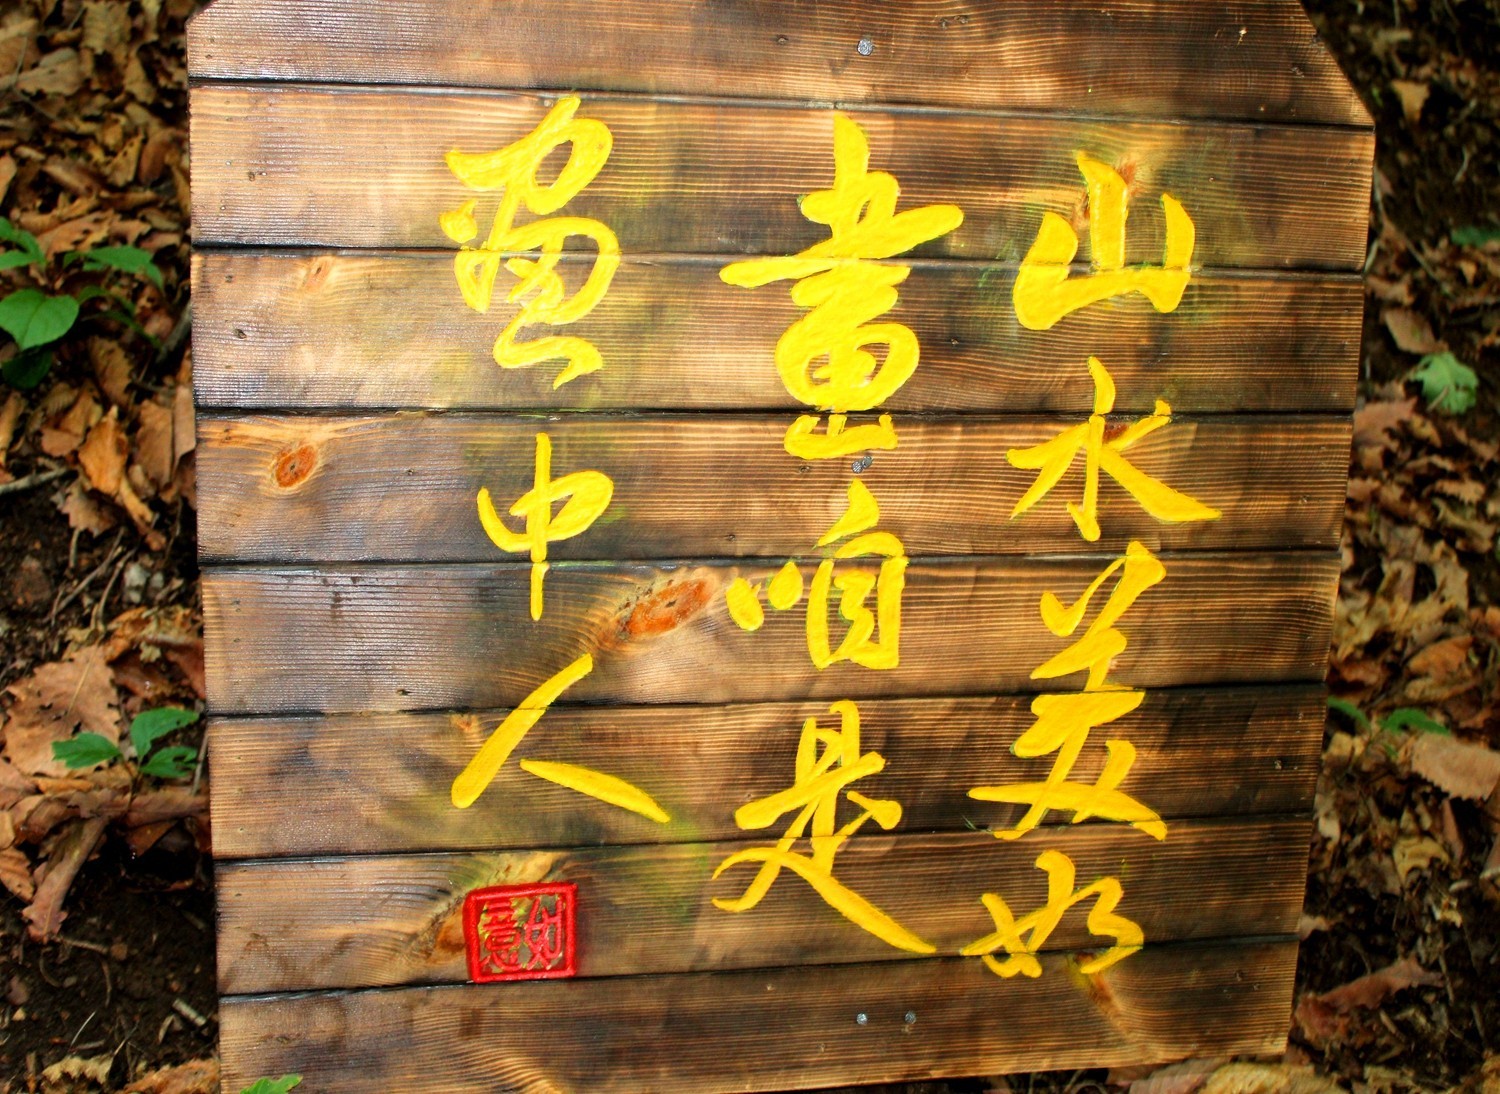 山水美如
畫咱是
畫中人
如意